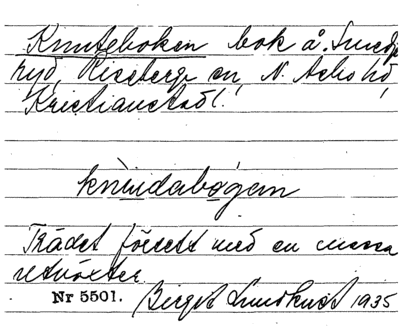 Knuteboken bok å. Smedje
ryd, Riseberga sn, N. Åsbo hd,
Kristianstad l.
knùdabógen
Trädet försett med en massa
utväxter.
Nr 5501. Birgit Lundkvist 1935